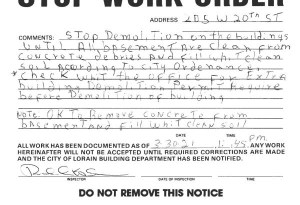 STOP WORK ORDER
ADDRESS 205 W 20th ST
COMMENTS: STOP Demolition on the buildings
UNTIL All basement are clean from
concrete debries and fill whit clean
soil According to city Ordenance
* Check whit the office for Extra
building Demolition Permit Require
before Demolition of building
Note: OK To Remove concrete from
basement and fill whit clean soil
DATE TIME
ALL WORK HAS BEEN DOCUMENTED AS OF 3.30.21 1:45 PM ANY WORK
HEREINAFTER WILL NOT BE ACCEPTED UNTIL REQUIRED CORRECTIONS ARE MADE
AND THE CITY OF LORAIN BUILDING DEPARTMENT HAS BEEN NOTIFIED.
INSPECTOR DATE INSPECTOR DATE
DO NOT REMOVE THIS NOTICE